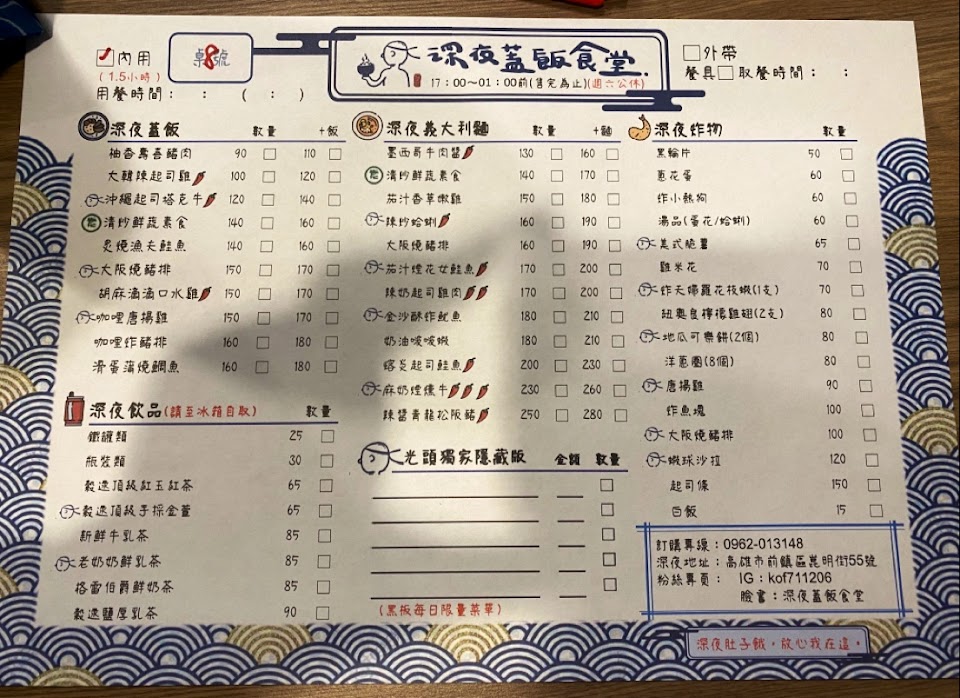 內用
(1.5小時)
用餐時間： ： ( ： )
桌8號
深夜蓋飯食堂
17：00～01：00前(售完為止)(週六公休)
外帶
餐具 取餐時間： ：
深夜蓋飯 數量 +飯
柚香壽喜豬肉 90 110
大韓辣起司雞 100 120
沖繩起司塔克牛 120 140
清炒鮮蔬素食 140 160
炙燒漁夫鮭魚 140 160
大阪燒豬排 150 170
胡麻滴滴口水雞 150 170
咖哩唐揚雞 150 170
咖哩炸豬排 160 180
滑蛋蒲燒鯛魚 160 180
深夜飲品(請至冰箱自取) 數量
鐵罐類 25
瓶裝類 30
穀迷頂級紅玉紅茶 65
穀迷頂級手採金萱 65
新鮮牛乳茶 85
老奶奶鮮乳茶 85
格雷伯爵鮮奶茶 85
穀迷鹽厚乳茶 90
深夜義大利麵 數量 +麵
墨西哥牛肉醬 130 160
清炒鮮蔬素食 140 170
茄汁香草嫩雞 150 180
辣炒蛤蜊 160 190
大阪燒豬排 160 190
茄汁煙花女鮭魚 170 200
辣奶起司雞肉 170 200
金沙酥炸魷魚 180 210
奶油啵啵蝦 180 210
熔炎起司鮭魚 200 230
麻奶煙燻牛 230 260
辣醬青龍松阪豬 250 280
光頭獨家隱藏版 金額 數量
(黑板每日限量菜單)
深夜炸物 數量
黑輪片 50
蔥花蛋 60
炸小熱狗 60
湯品(蛋花/蛤蜊) 60
美式脆薯 65
雞米花 70
炸天婦羅花枝蝦(1支) 70
紐奧良檸檬雞翅(2支) 80
地瓜可樂餅(2個) 80
洋蔥圈(8個) 80
唐揚雞 90
炸魚塊 100
大阪燒豬排 100
蝦球沙拉 120
起司條 150
白飯 15
訂購專線：0962-013148
深夜地址：高雄市前鎮區崑明街55號
粉絲專頁： IG：kof711206
臉書：深夜蓋飯食堂
深夜肚子餓，放心我在這。